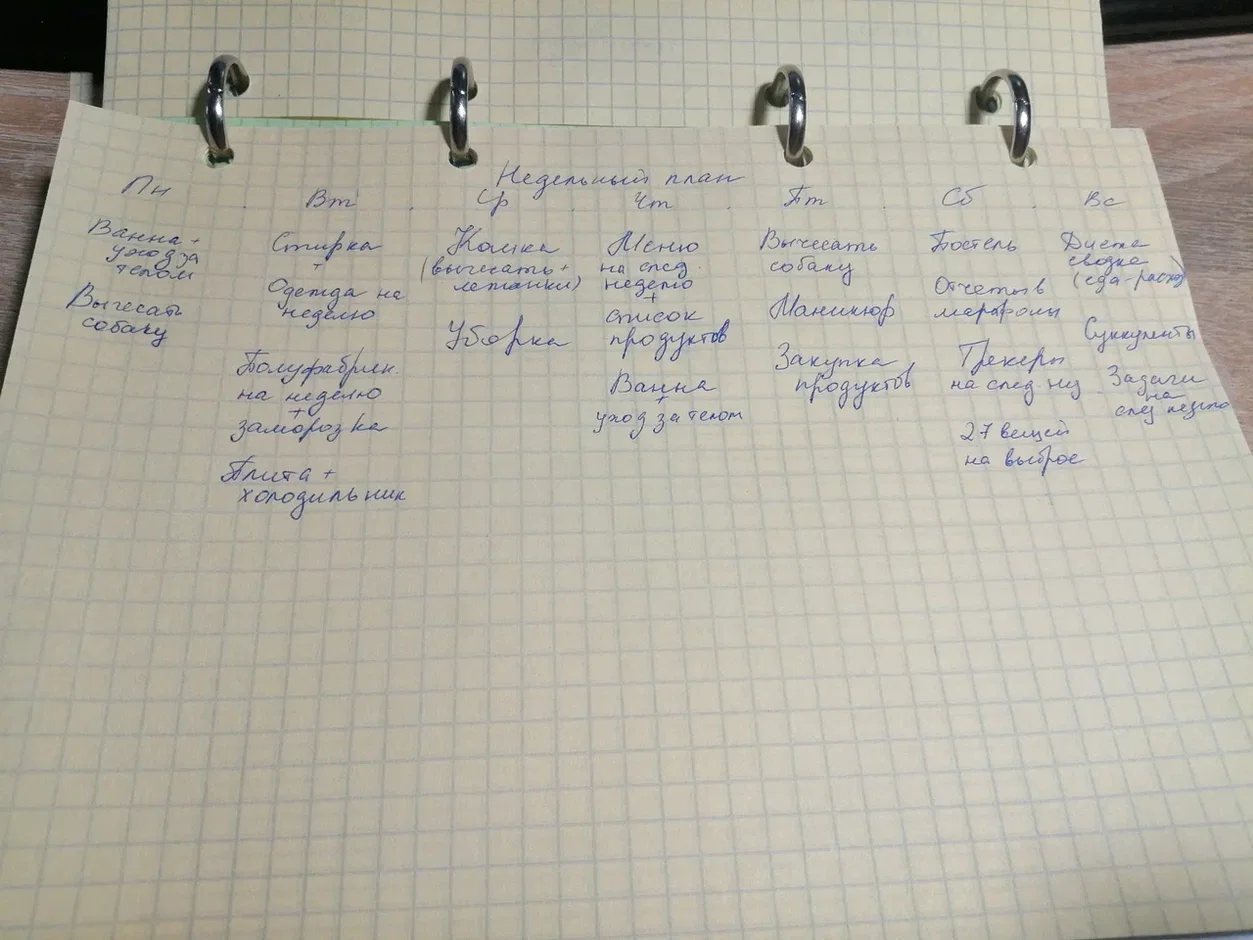 Недельный план
Пн
Ванна +
уход за
телом
Вычесать
собаку
Вт
Стирка
+
Одежда на
неделю
Полуфабрик.
на неделю
+
заморозка
Плита +
холодильник
Ср
Кошка
(вычесать +
лежанки)
Уборка
Чт
Меню
на след.
неделю
+
список
продуктов
Ванна
+
уход за телом
Пт
Вычесать
собаку
Маникюр
Закупка
продуктов
Сб
Постель
Отчеты в
марафоны
Трекеры
на след. нед
27 вещей
на выброс
Вс
сводка
(еда-расход
Суккуленты
Задачи
на
след неделю